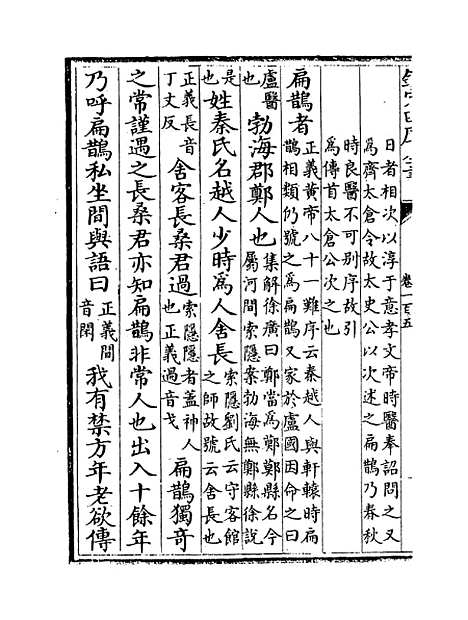 卷一百五
日者相次以淳于意孝文帝時醫奉詔問之又
為齊太倉令故太史公以次述之扁鵲乃春秋
時良醫不可别序故引
為傳首太倉公次之也
扁鵲者正義黄帝八十一難序云秦越人與軒轅時扁鵲相類仍號之為扁鵲又家於盧國因命之曰
盧醫也勃海郡鄭人也集解徐廣曰鄭當為鄚鄚縣名今屬河間索隱案勃海無鄭縣徐說
是也姓秦氏名越人少時為人舍長索隱劉氏云守客館之師故號云舍長也
正義長音丁丈反舍客長桑君過索隱隱者蓋神人也正義過音戈扁鵲獨奇
之常謹遇之長桑君亦知扁鵲非常人也出入十餘年
乃呼扁鵲私坐間與語曰正義間音閑我有禁方年老欲傳